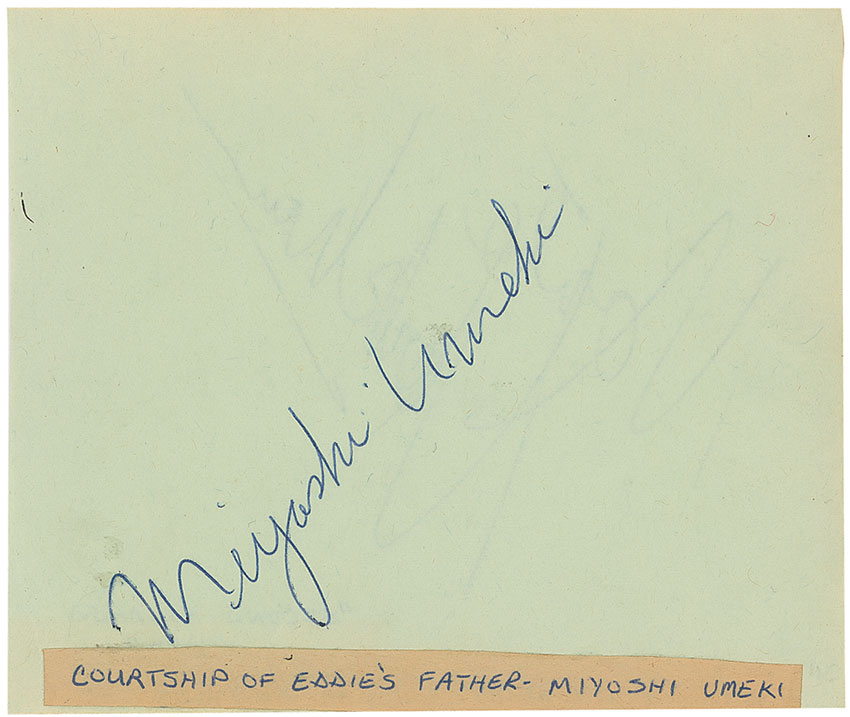 Miyoshi Umeki
COURTSHIP OF EDDIE'S FATHER- MIYOSHI UMEKI